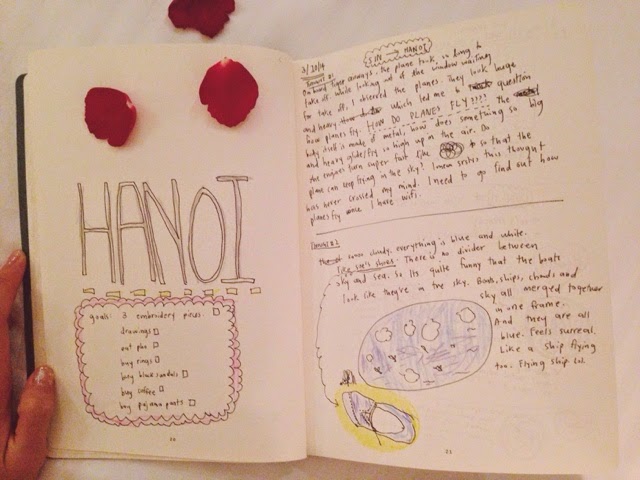 HANOI
goals: 3 embroidery pieces.
drawings
eat pho
buy rings
buy blue sandals
buy coffee
buy pajama pants
22
SIN → HANOI
3/20/14
On board Tiger airways. the plane took so long to
take off. While looking out of the window waiting
for take off, I observed the planes. They look huge
and heavy which led me to question
how planes fly. HOW DO PLANES FLY???? the
body itself is made of metal, how does something so big
and heavy glide/fry so high up in the air. Do
the engines turn super fast like so that the
plane can keep flying in the sky? this thought
has never crossed my mind. I need to go find out how
planes fly once I have wifi.
cloudy. everything is blue and white.
like shoes. There is no divider between
sky and sea. So its quite funny that the boats
look like they're in the sky. Boats, ships, clouds and
sky all merged together
in one frame.
And they are all
blue. Feels surreal.
Like a ship flying
too. Flying ship lol.
23